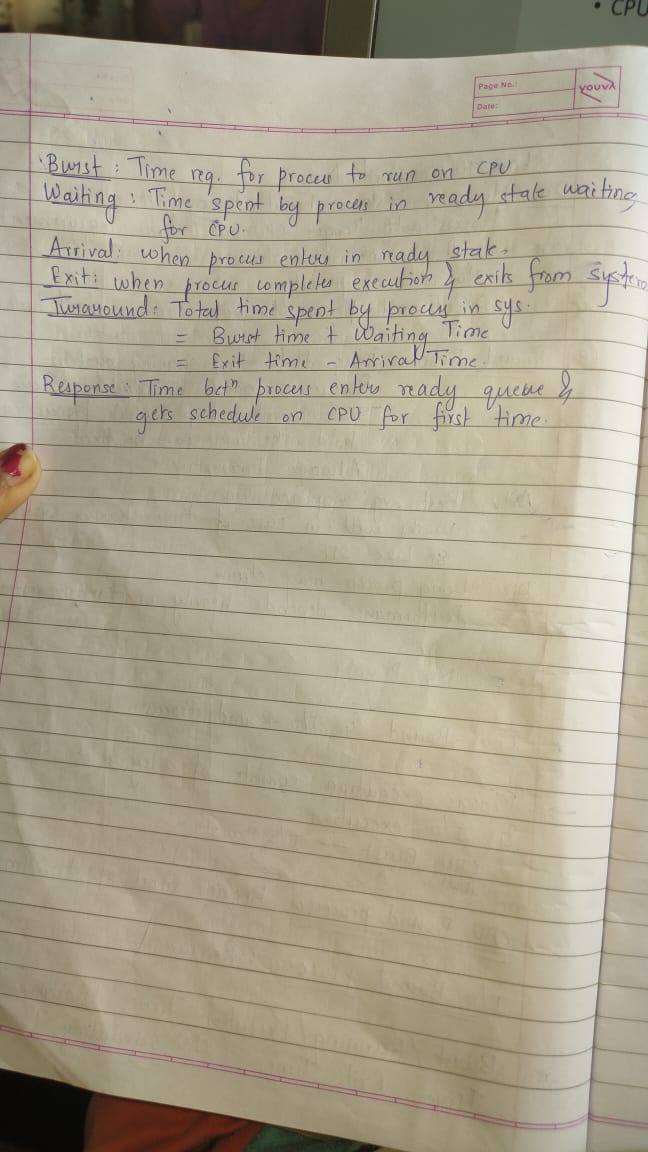 • CPU
Page No.:
Date:
YOUVA
Burst : Time req. for process to run on CPU
Waiting : Time spent by process in ready state waiting
for CPU.
Arrival: when process enters in ready state.
Exit: when process completes execution & exits from system
Turnaround: Total time spent by process in sys.
= Burst time + Waiting Time
= Exit time - Arrival Time.
Response: Time betⁿ process enters ready queue &
gets schedule on CPU for first time.